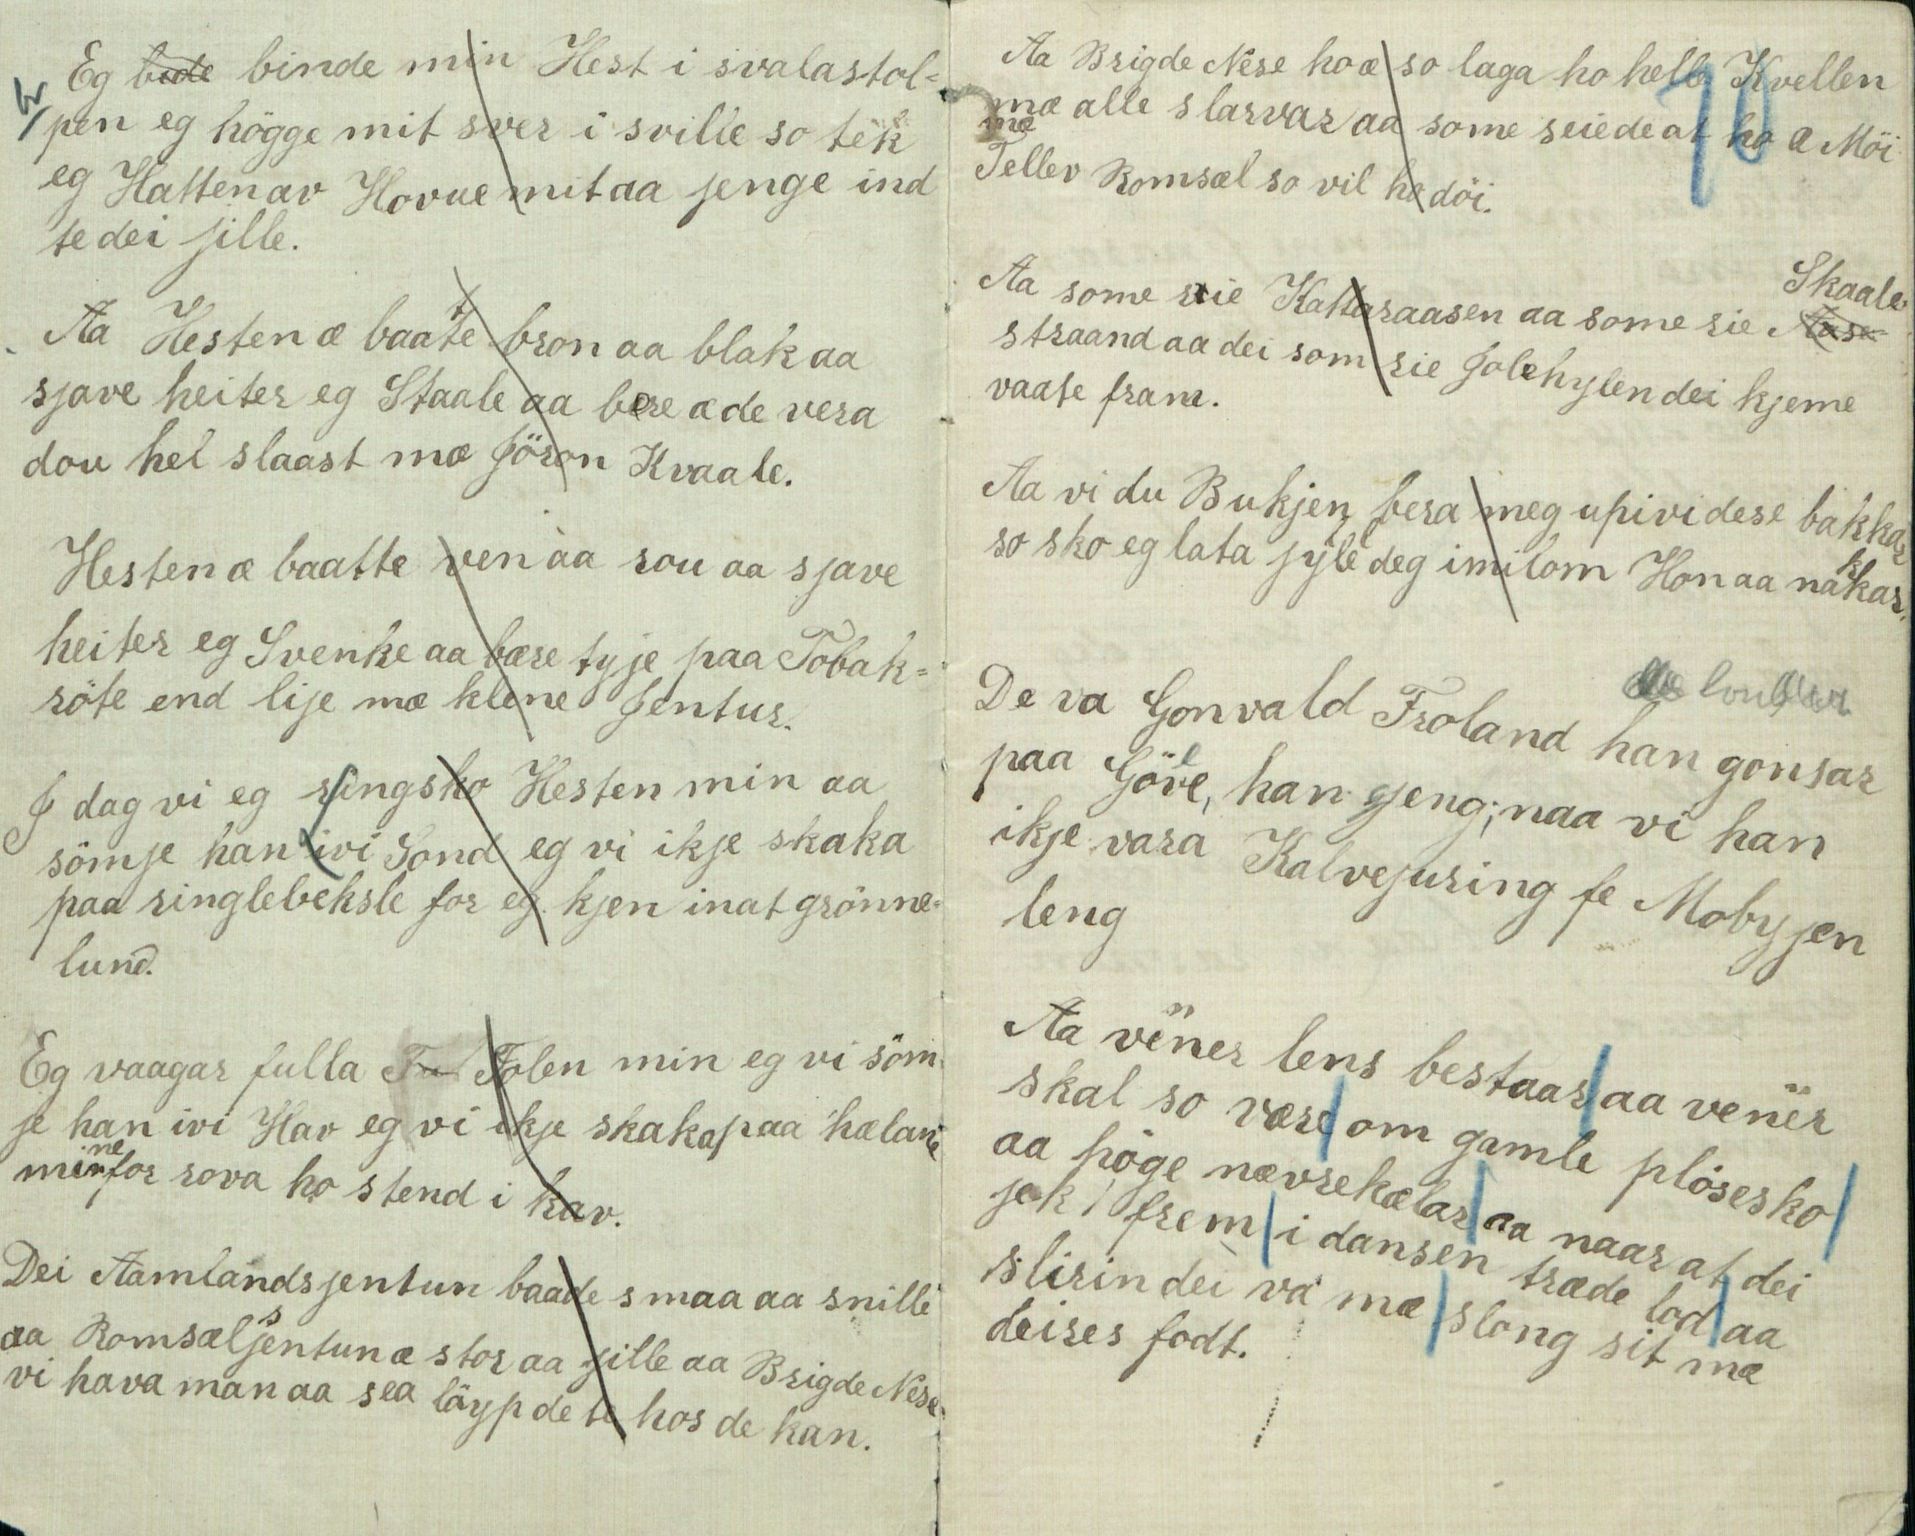 Eg bide binde min Hest i svalastol-
pen eg högge mit sver i sville so tek
eg Hatten av Hovue mit aa jenge ind
te dei jille.
Aa Hesten æ baate bron aa blak aa
sjave heiter eg Staale aa bere æ de vera
dou hel slaast mæ Jöron Kvaale.
Hesten æ baatte ven aa rou aa sjave
heiter eg Svenke aa bære tyje paa Tobak-
röte end lije mæ klene Jentur.
I dag vi eg ringsko Hesten min aa
sömje han ivi Sond eg vi ikje skaka
paa ringlebeksle for eg kjen inat grönne-
lund.
Eg vaagar fulla Folen min eg vi söm-
je han ivi Hav eg vi ikje skaka paa hælane
mine for rova ho stend i kav.
Dei Aamlandsjentun baade smaa aa snille
aa Romsælsjentun æ stor aa jille aa Brigde Nese
vi hava man aa sea läyp de te hos de kan.
Aa Brigde Nese ho æ so laga ho helle Kvellen
10
mæ alle slarvar aa some seie de at ho æ Möi
mæ
Tellev Romsæl so vil ho döi.
Skaale-
Aa some rie Kattaraasen aa some rie
straand aa dei som rie Jolehylen dei kjeme
vaate fram.
Aa vi du Bukjen bera meg up ivi dese bakkar
so sko eg lata jyle deg imilom Hon aa nakkar.
De va Gonvald Froland han gonsar
paa Göle, han gjeng; naa vi han
ikje vara Kalvejuring fe Mobyjen
leng
Aa vener lens bestaar aa vener
skal so være om gamle plösesko
aa höge nævrehælar aa naar at dei
jek frem i dansen træde lod aa
slirin dei va mæ slong sit mæ
deires fodt.